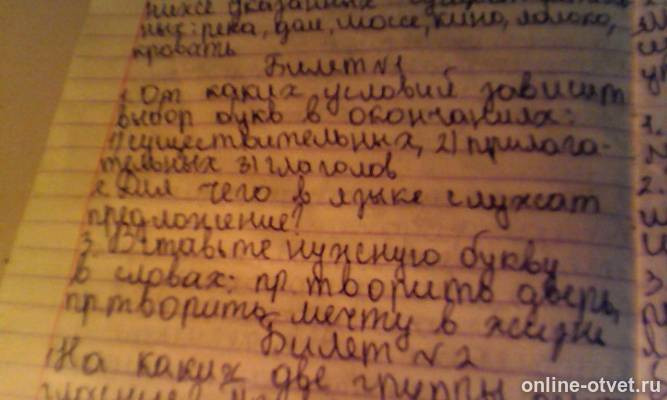 ных: река, дом, шоссе, кино, яблоко,
кровать
Билет N1
1. От каких условий зависит
выбор букв в окончаниях:
1) существительных, 2) прилага-
тельных 3) глаголов
2. Для чего в языке служат
предложение?
3. Вставьте нужную букву
в словах: пр.творить дверь,
пр.творить мечту в жизнь
Билет N2
На каких две группы
online-otvet.ru